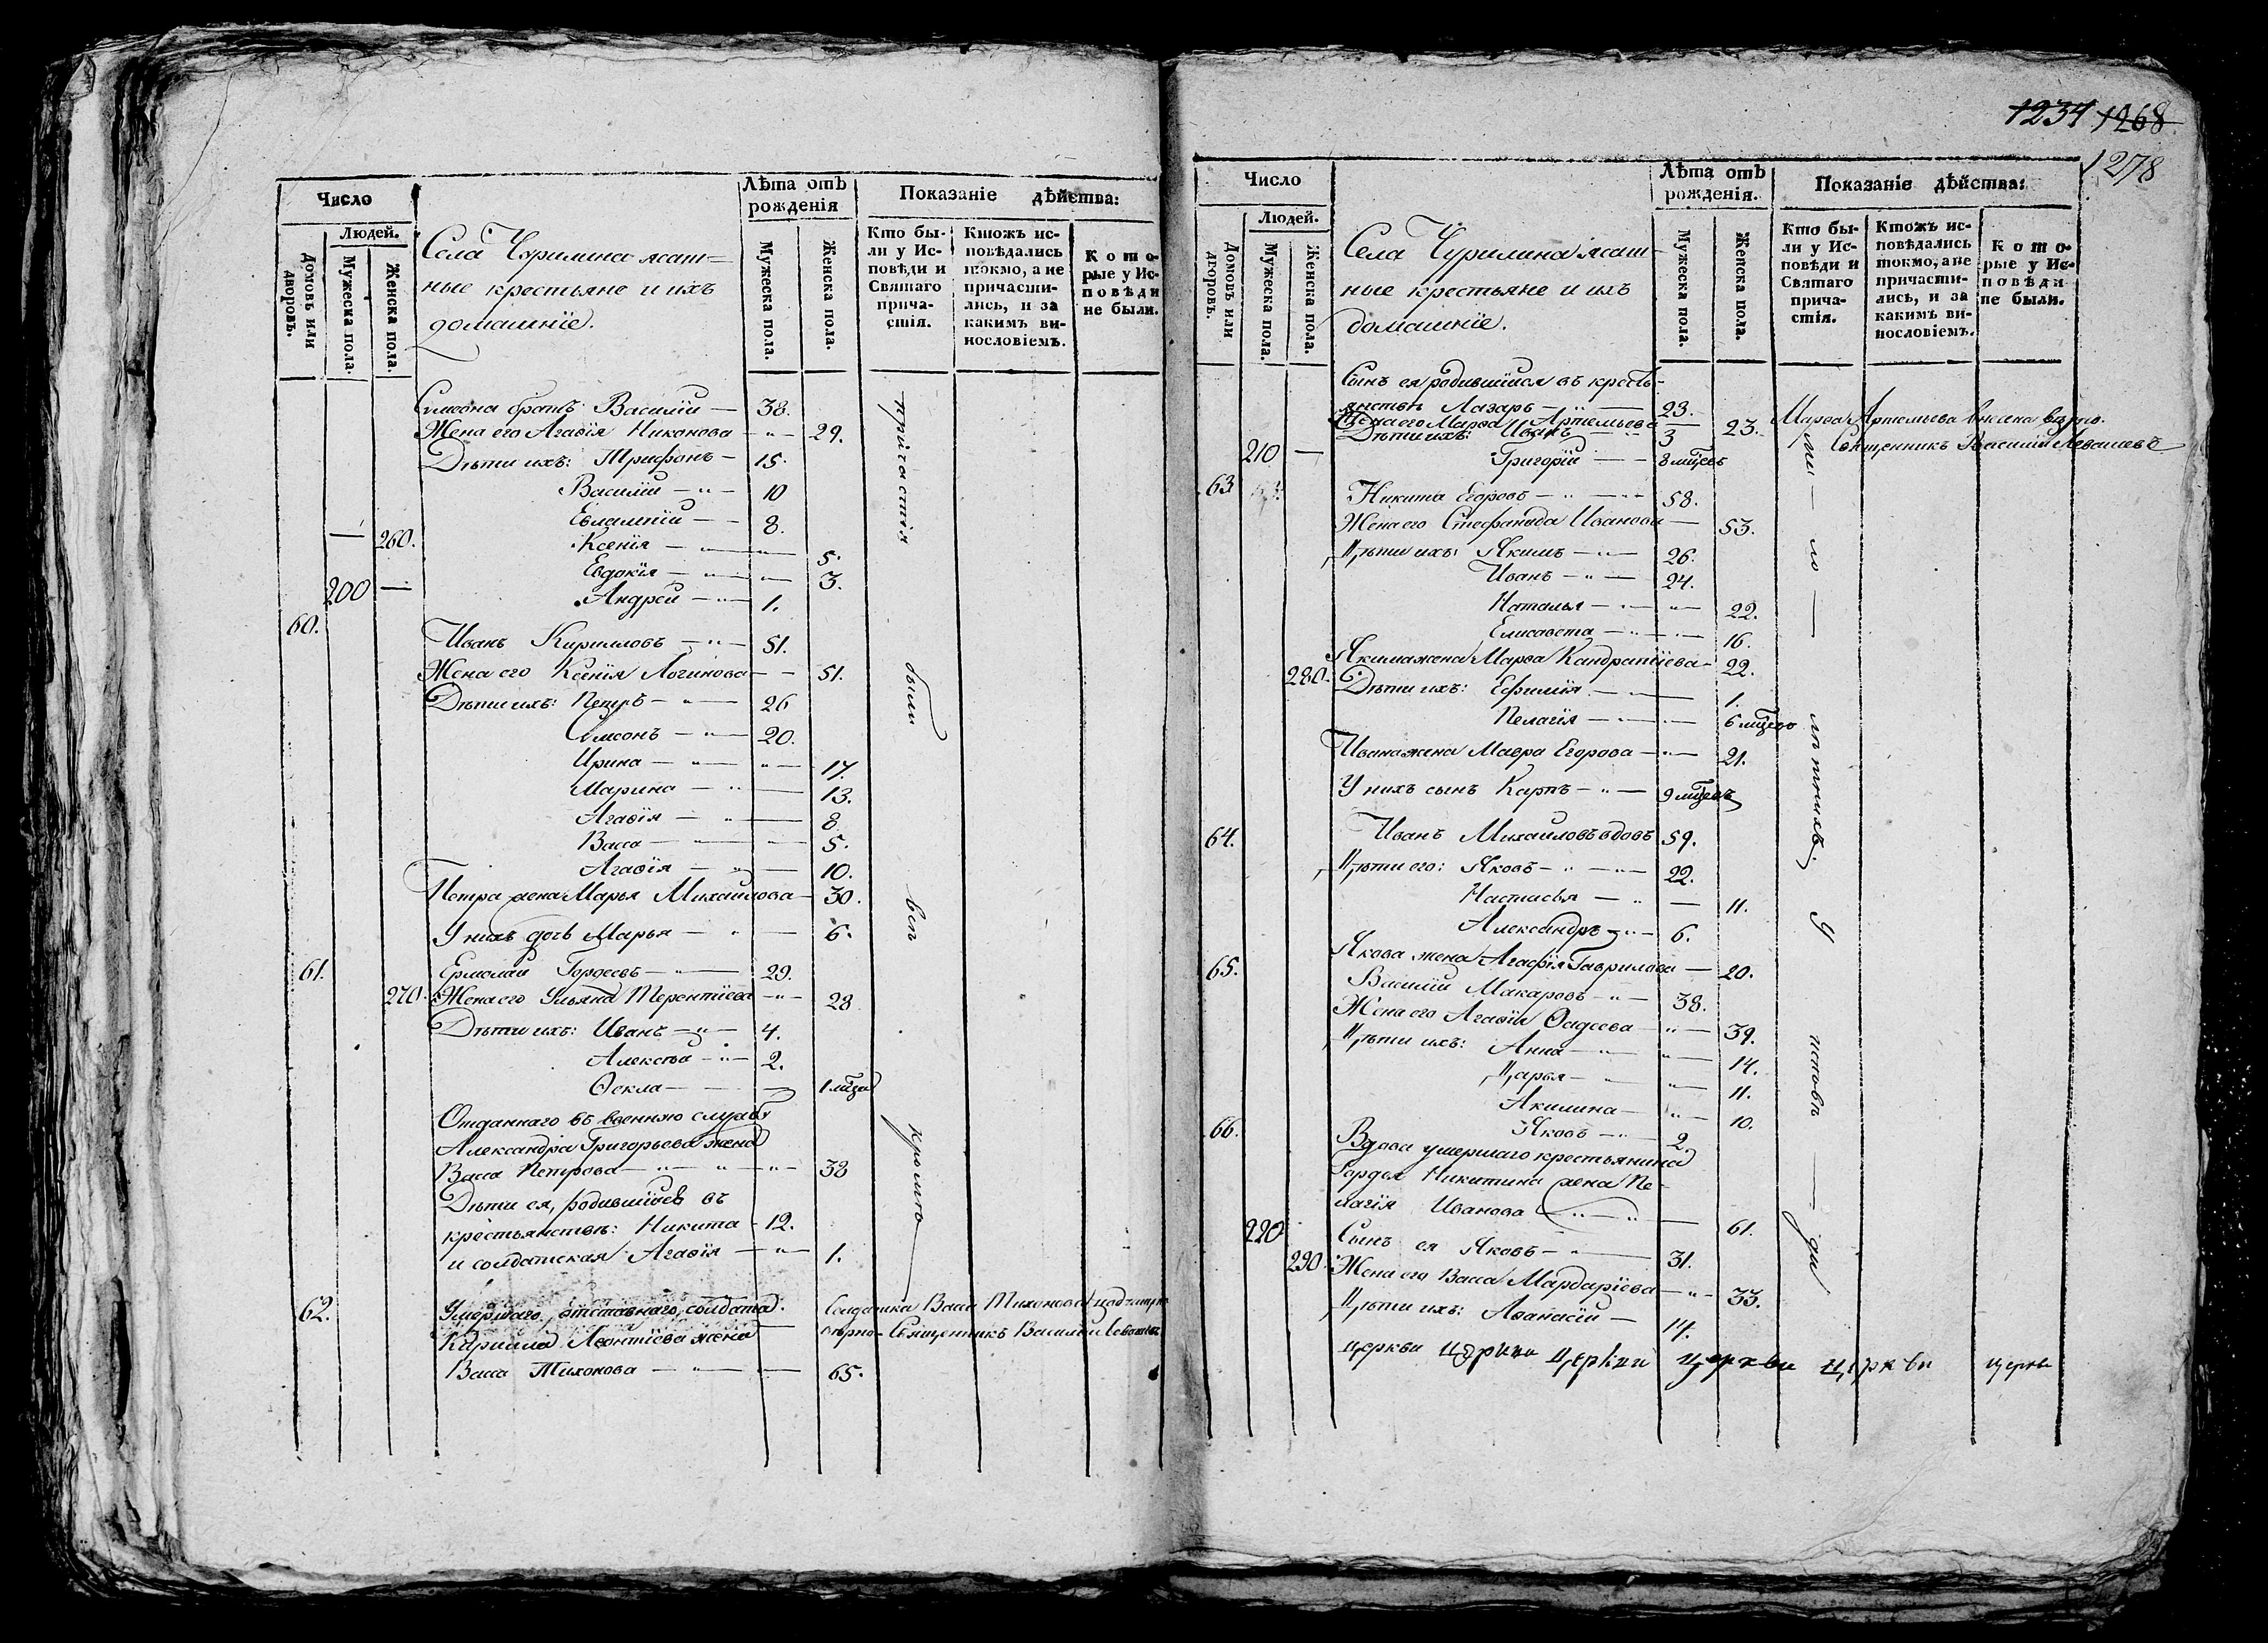 Число
Людей.
Домовъ или дворовъ.
Мужеска пола.
Женска пола.
Села Чурилина ясаш=
ные крестьяне и ихъ
домашніе.
Лѣта отъ рожденія
Мужеска пола.
Женска пола.
Показаніе дѣйства:
Кто были у Исповѣди и Святаго причастія.
Ктожъ исповѣдались токмо, а не причастились, и за какимъ винословіемъ.
Которые у Исповѣди не были.
Симеона братъ Василіи — 38.
Жена его Агафія Никонова — 29.
Дѣти ихъ: Трифонъ — 15.
Василіи — 10
Евлампіи — 8.
— 260. Ксенія — 5.
Евдокія — 3.
200 — Андреи — 1.
60.
Иванъ Кирилловъ — 51.
Жена его Ксенія Логинова — 51.
Дѣти ихъ: Петръ — 26
Симеонъ — 20.
Ирина — 17.
Марина — 13.
Агафія — 8
Васса — 5.
Агафія — 10.
Петра жена Марья Михаилова — 30.
У нихъ дочь Марья — 6.
61. Ермолаи Гордеевъ — 29.
270. Жена его Ульяна Терентіева — 28
Дѣти ихъ: Иванъ — 4.
Алексѣи — 2.
Ѳекла — 1 мѣсяц
Отданнаго въ военную службу
Александра Григорьева жена
Васса Петрова — 38
Дѣти ея, родившіися въ
крестьянствѣ: Никита — 12.
и солдатская Агафія — 1.
62. Умершаго отставнаго солдата
Кирилла Леонтіева жена
Васса Тихонова — 65.
причастія
были
всѣ
кромѣ
Солдатка Васса Тихонова
вѣрно Священникъ Василіи
1234 1268
1278
Число
Людей.
Домовъ или дворовъ.
Мужеска пола.
Женска пола.
Села Чурилина ясаш-
ные крестьяне и ихъ
домашніе.
Лѣта отъ рожденія.
Мужеска пола.
Женска пола.
Показаніе дѣйства:
Кто были у Исповѣди и Святаго причастія.
Ктожъ исповѣдались токмо, а не причастились, и за какимъ винословіемъ.
Которые у Исповѣди не были.
Сынъ ея родившіися въ кресть-
янствѣ Лазарь — 23.
Жена его Марѳа Артемьева — 23.
Марѳа Артемьева вписана вѣрно.
Священникъ Василіи
Дѣти ихъ: Иванъ — 3
210 — Григоріи — 8 мѣсецъ
63 Никита Егоровъ — 58.
Жена его Стефанида Иванова — 53.
Дѣти ихъ: Якимъ — 26.
Иванъ — 24.
Наталья — 22.
Елисавета — 16.
Якима жена Марѳа Кандратіева — 22.
280. Дѣти ихъ: Ефимія — 1.
Пелагія — 6 мѣсецъ
Ивана жена Мавра Егорова — 21.
У нихъ сынъ Карпъ — 9 мѣсецъ
64. Иванъ Михаиловъ вдовъ 59.
Дѣти его: Яковъ — 22.
Настасья — 11.
Александръ — 6.
Якова жена Агафія Гаврилова — 20.
65. Василіи Макаровъ — 38.
Жена его Агафія Ѳадеева — 39.
Дѣти ихъ: Анна — 14.
Дарья — 11.
Акилина — 10.
Яковъ — 2.
66. Вдова умершаго крестьянина
Гордея Никитина жена Пе-
лагія Иванова — 61.
220 Сынъ ея Яковъ — 31.
290. Жена его Васса Мардаріева — 33.
Дѣти ихъ: Аѳанасіи — 14.
церкви церкви церкви церкви церкви церкви
ма — ло — лѣтнихъ
у исповѣ — ди